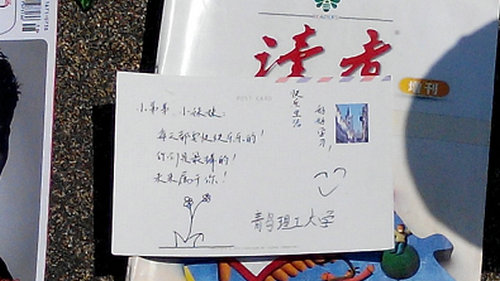 READERS
读者
增刊
POST CARD
小弟弟、小妹妹:
每天都要快快乐乐的!
你们是最棒的!
未来属于你!
快乐生活
好好学习!
青岛理工大学